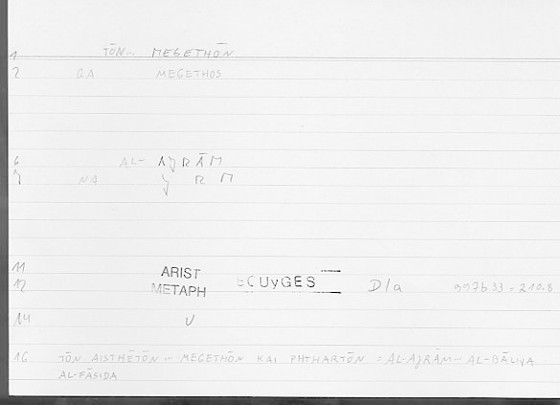 1 TŌN - MEGETHŌN
2 GA MEGETHOS
6 AL- AJRĀM
7 NA J R M
11 ARIST
12 METAPH D/a 997b33 = 210.8
14 V
16 TŌN AISTHĒTŌN - MEGETHŌN KAI PHTHARTŌN = AL-AJRĀM - AL-BĀLIYA
AL-FĀSIDA